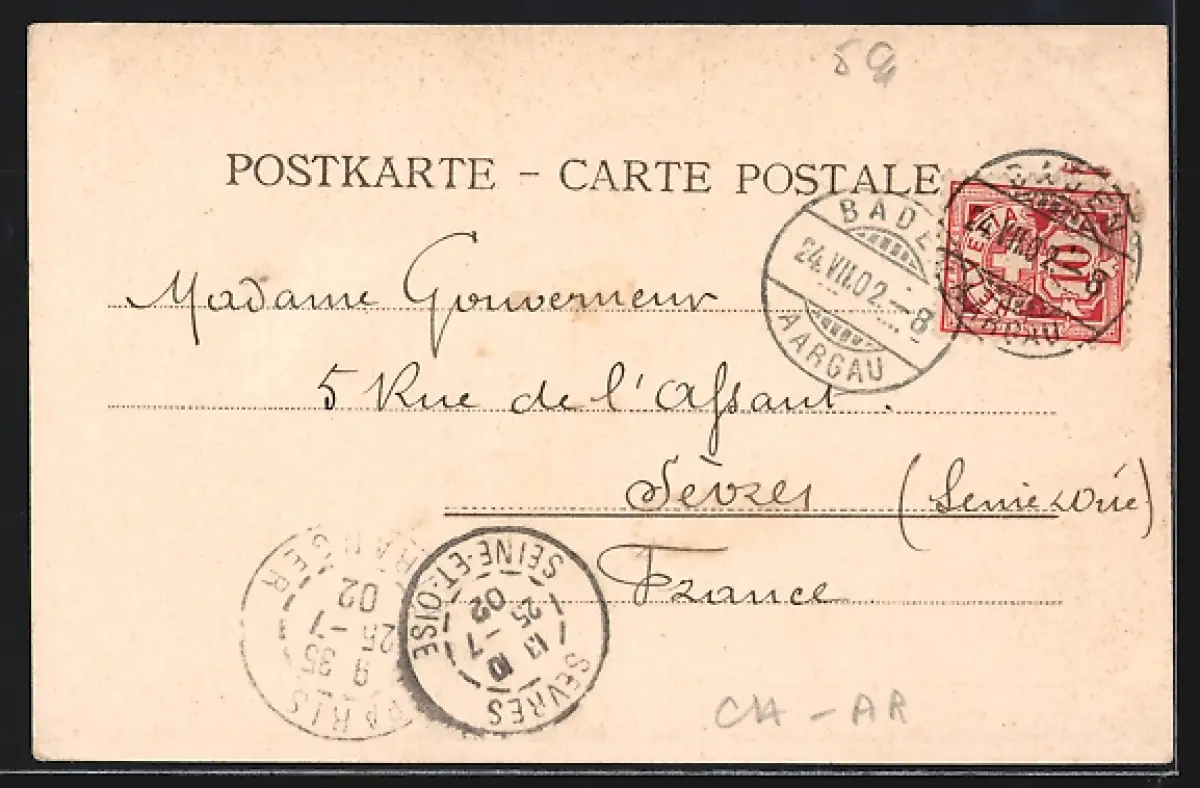 POSTKARTE - CARTE POSTALE
BADEN
24.VII.02.-8
AARGAU
BADEN
24.VII.02.-8
AARGAU
HELVETIA
10
Madame Gouverneur
5 Rue de l'Assaut.
Sèvres (Seine et Oise)
France
PARIS
9 35
25 -7
02
ETRANGER
SEVRES
13 10
25 -7
02
SEINE-ET-OISE
CH - AR